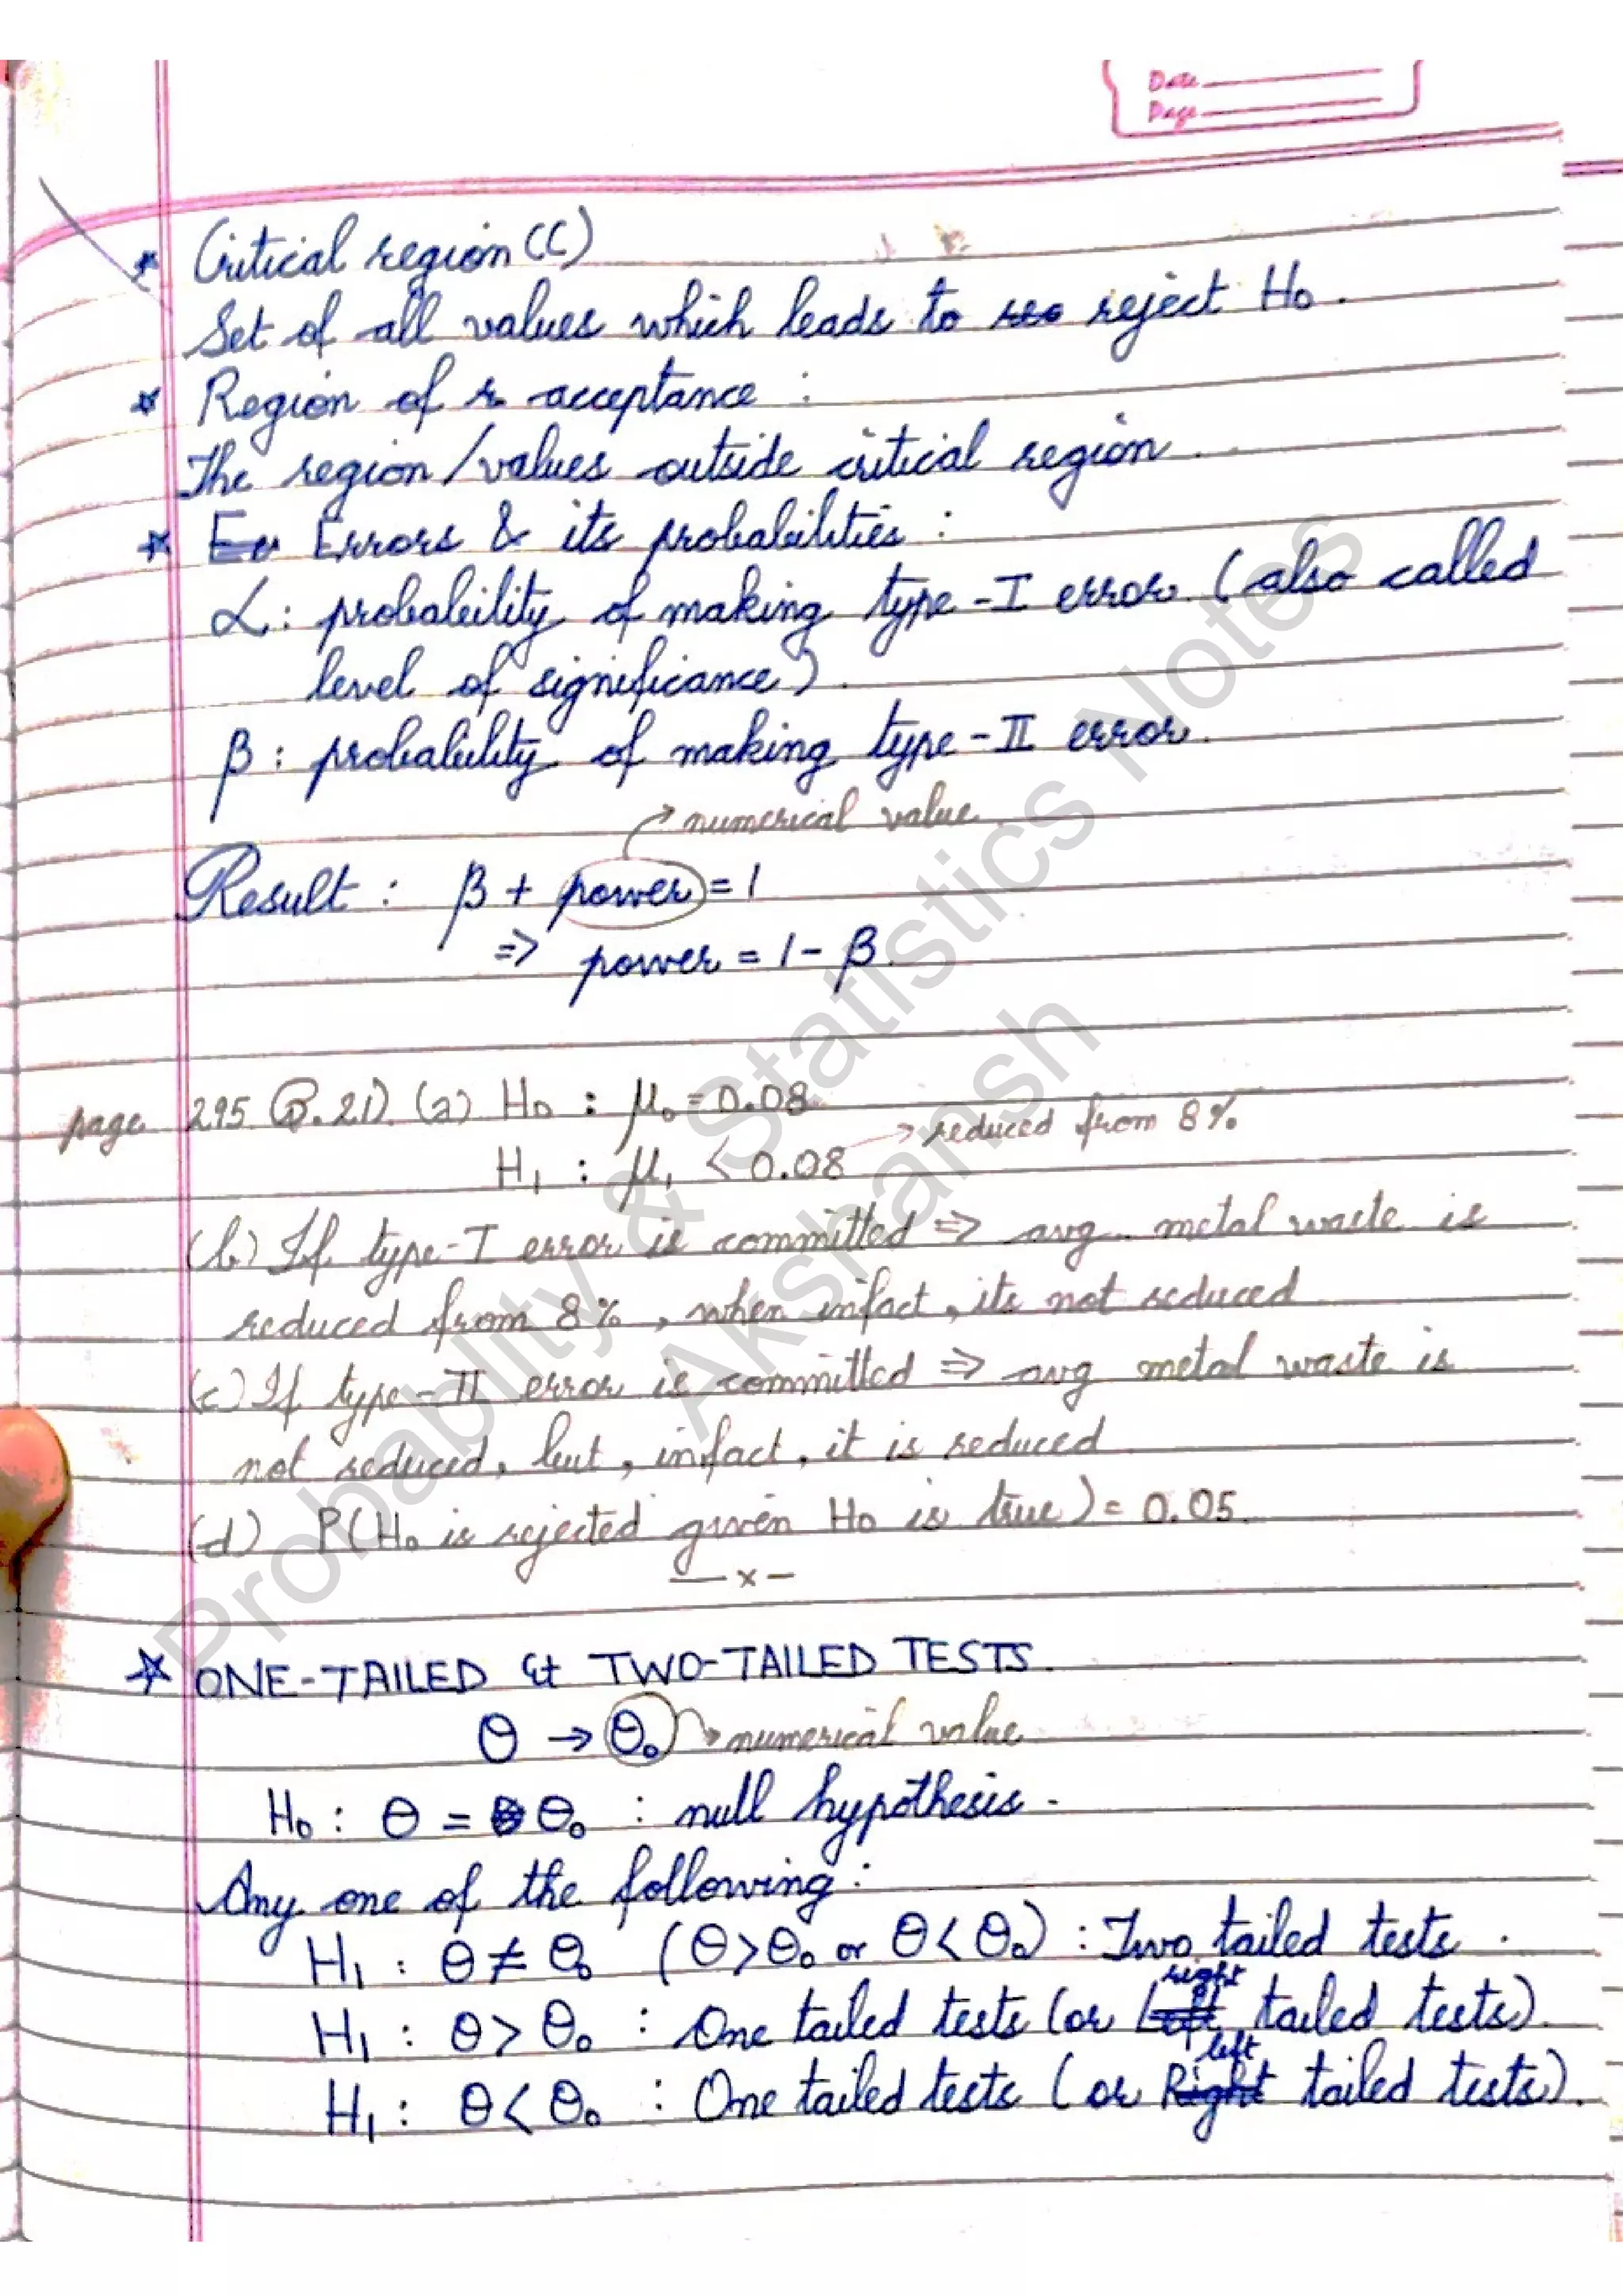 Date
Page
* Critical region (C)
Set of all values which leads to reject H₀.
* Region of acceptance :
The region/values outside critical region.
* Errors & its probabilities :
α : probability of making type-I error (also called
level of significance).
β : probability of making type-II error.
→ numerical value
Result : β + power = 1
⇒ power = 1 - β.
page 295 (8.21) (a) H₀ : μ₀ = 0.08
H₁ : μ₁ < 0.08 → reduced from 8%
(b) If type-I error is committed ⇒ avg. metal waste is
reduced from 8%, when infact, its not reduced
(c) If type-II error is committed ⇒ avg metal waste is
not reduced, but, infact, it is reduced
(d) P(H₀ is rejected given H₀ is true) = 0.05.
— x —
☆ ONE-TAILED & TWO-TAILED TESTS.
θ → θ₀ → numerical value
H₀ : θ = θ₀ : null hypothesis.
Any one of the following :
H₁ : θ ≠ θ₀ (θ > θ₀ or θ < θ₀) : Two tailed tests.
H₁ : θ > θ₀ : One tailed tests (or right tailed tests).
H₁ : θ < θ₀ : One tailed tests (or left tailed tests).
Probablity & Statistics Notes
Akshansh